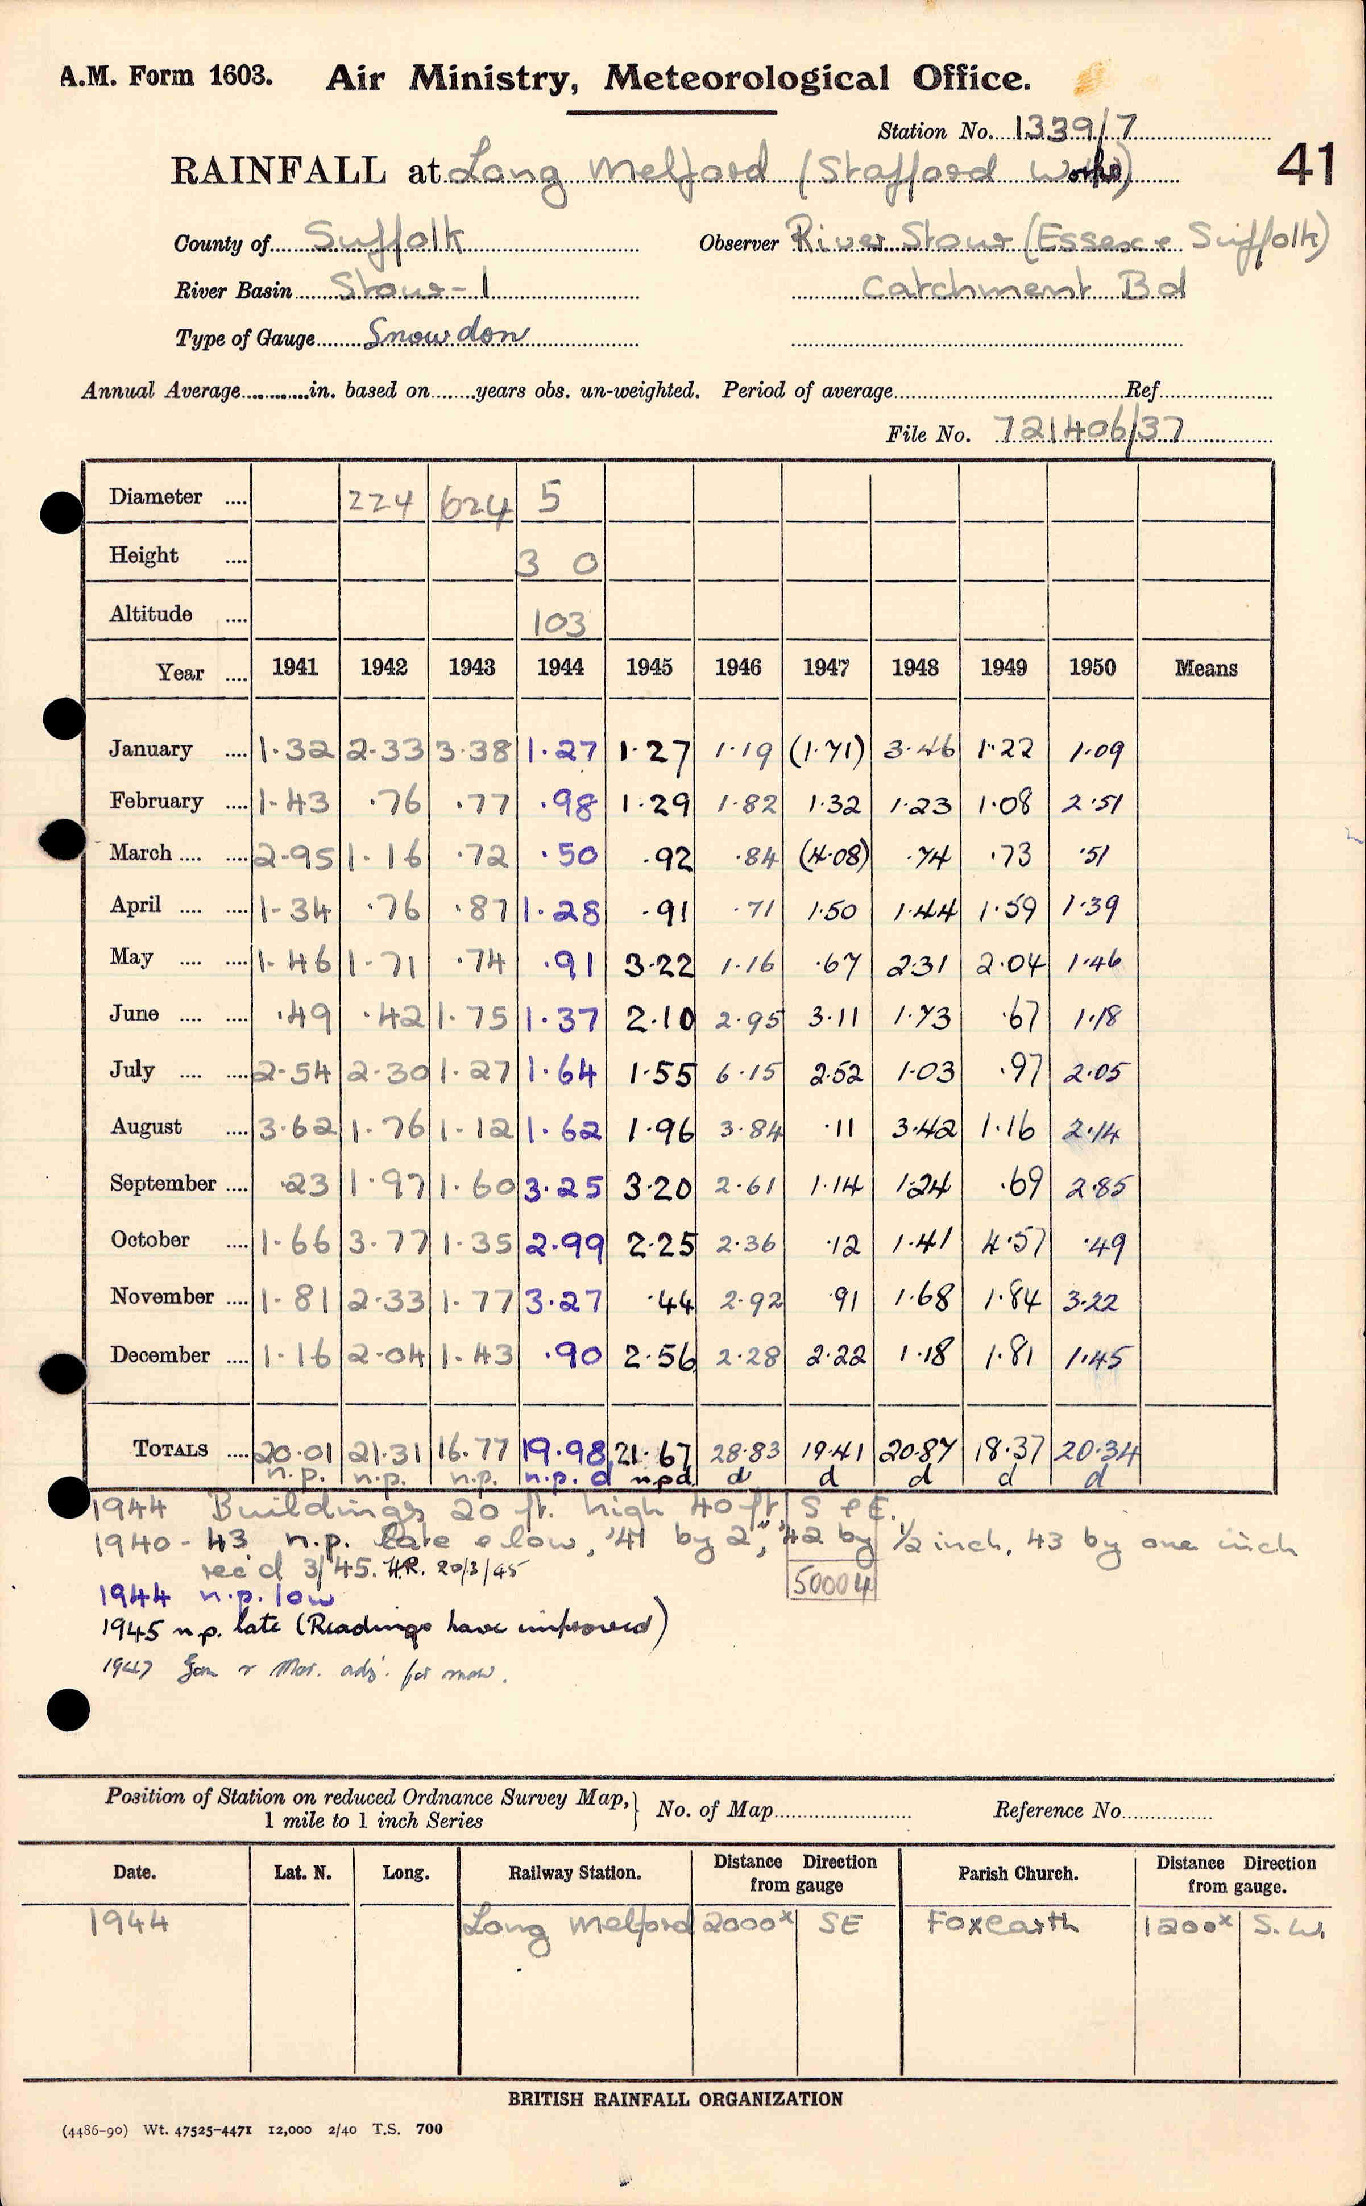 A.M. Form 1603. Air Ministry, Meteorological Office.
Station No. 1339/7
RAINFALL at Long Melford (Stafford Works)
41
County of Suffolk Observer River Stour (Essex & Suffolk)
River Basin Stour-1 Catchment Bd
Type of Gauge Snowdon
Annual Average............in. based on........years obs. un-weighted. Period of average........Ref........
File No. 721406/37
Diameter .... 224 624 5
Height .... 3 0
Altitude .... 103
Year .... 1941 1942 1943 1944 1945 1946 1947 1948 1949 1950 Means
January .... 1.32 2.33 3.38 1.27 1.27 1.19 (1.71) 3.46 1.22 1.09
February .... 1.43 .76 .77 .98 1.29 1.82 1.32 1.23 1.08 2.51
March .... .... 2.95 1.16 .72 .50 .92 .84 (4.08) .74 .73 .51
April .... .... 1.34 .76 .87 1.28 .91 .71 1.50 1.44 1.59 1.39
May .... .... 1.46 1.71 .74 .91 3.22 1.16 .67 2.31 2.04 1.46
June .... .... .49 .42 1.75 1.37 2.10 2.95 3.11 1.73 .67 1.18
July .... .... 2.54 2.30 1.27 1.64 1.55 6.15 2.52 1.03 .97 2.05
August .... 3.62 1.76 1.12 1.62 1.96 3.84 .11 3.42 1.16 2.14
September .... .23 1.97 1.60 3.25 3.20 2.61 1.14 1.24 .69 2.85
October .... 1.66 3.77 1.35 2.99 2.25 2.36 .12 1.41 4.57 .49
November .... 1.81 2.33 1.77 3.27 .44 2.92 .91 1.68 1.84 3.22
December .... 1.16 2.04 1.43 .90 2.56 2.28 2.22 1.18 1.81 1.45
TOTALS .... 20.01 21.31 16.77 19.98 21.67 28.83 19.41 20.87 18.37 20.34
n.p. n.p. n.p. n.p. d n.p.d d d d d d
1944 Buildings 20 ft. high 40 ft S & E.
1940-43 n.p. late & low, '41 by 2", '42 by 1/2 inch, 43 by one inch
rec'd 3/45. H.R. 20/3/45
50004
1944 n.p. low
1945 n.p. late (Readings have improved)
1947 Jan & Mar. adj. for snow.
Position of Station on reduced Ordnance Survey Map,
1 mile to 1 inch Series
No. of Map........ Reference No........
Date. Lat. N. Long. Railway Station. Distance Direction from gauge Parish Church. Distance Direction from gauge.
1944 Long Melford 2000x SE Foxearth 1200x S.W.
BRITISH RAINFALL ORGANIZATION
(4486-90) Wt. 47525-4471 12,000 2/40 T.S. 700